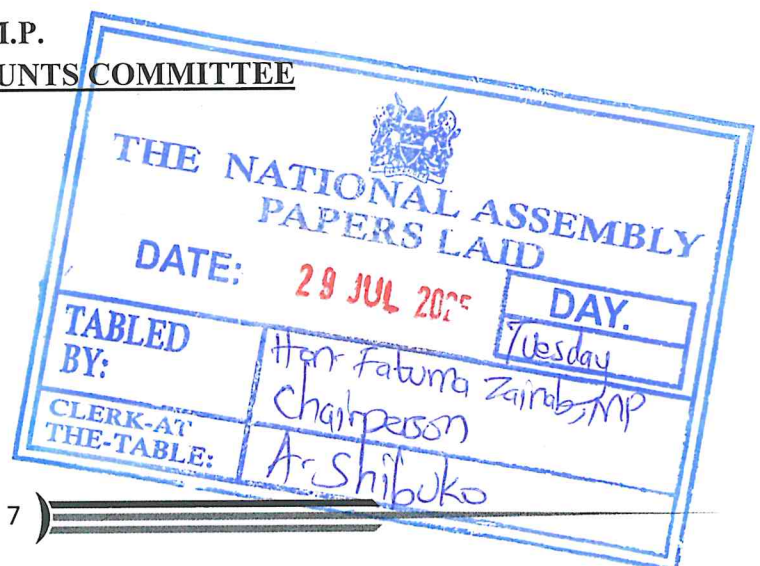 I.P.
UNTS COMMITTEE
THE NATIONAL ASSEMBLY
PAPERS LAID
DATE: 29 JUL 202
DAY.
Tuesday
TABLED BY:
Hon Fatuma Zainab, MP
Chairperson
CLERK-AT THE-TABLE:
A. Shibuko
7